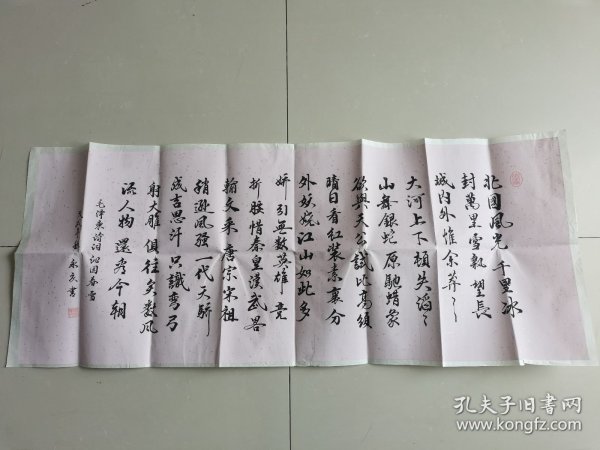 北國風光千里冰
封萬里雪飄望長
城内外惟余莽〻
大河上下頓失滔〻
山舞銀蛇原馳蜡象
欲與天公試比高須
晴日看紅裝素裹分
外妖娆江山如此多
娇引無數英雄竞
折腰惜秦皇漢武略
輸文采唐宗宋祖
稍遜風骚一代天驕
成吉思汗只識彎弓
射大雕俱往矣数風
流人物還看今朝
毛泽東詩詞沁园春雪
永亥書
孔夫子旧书网
www.kongfz.com